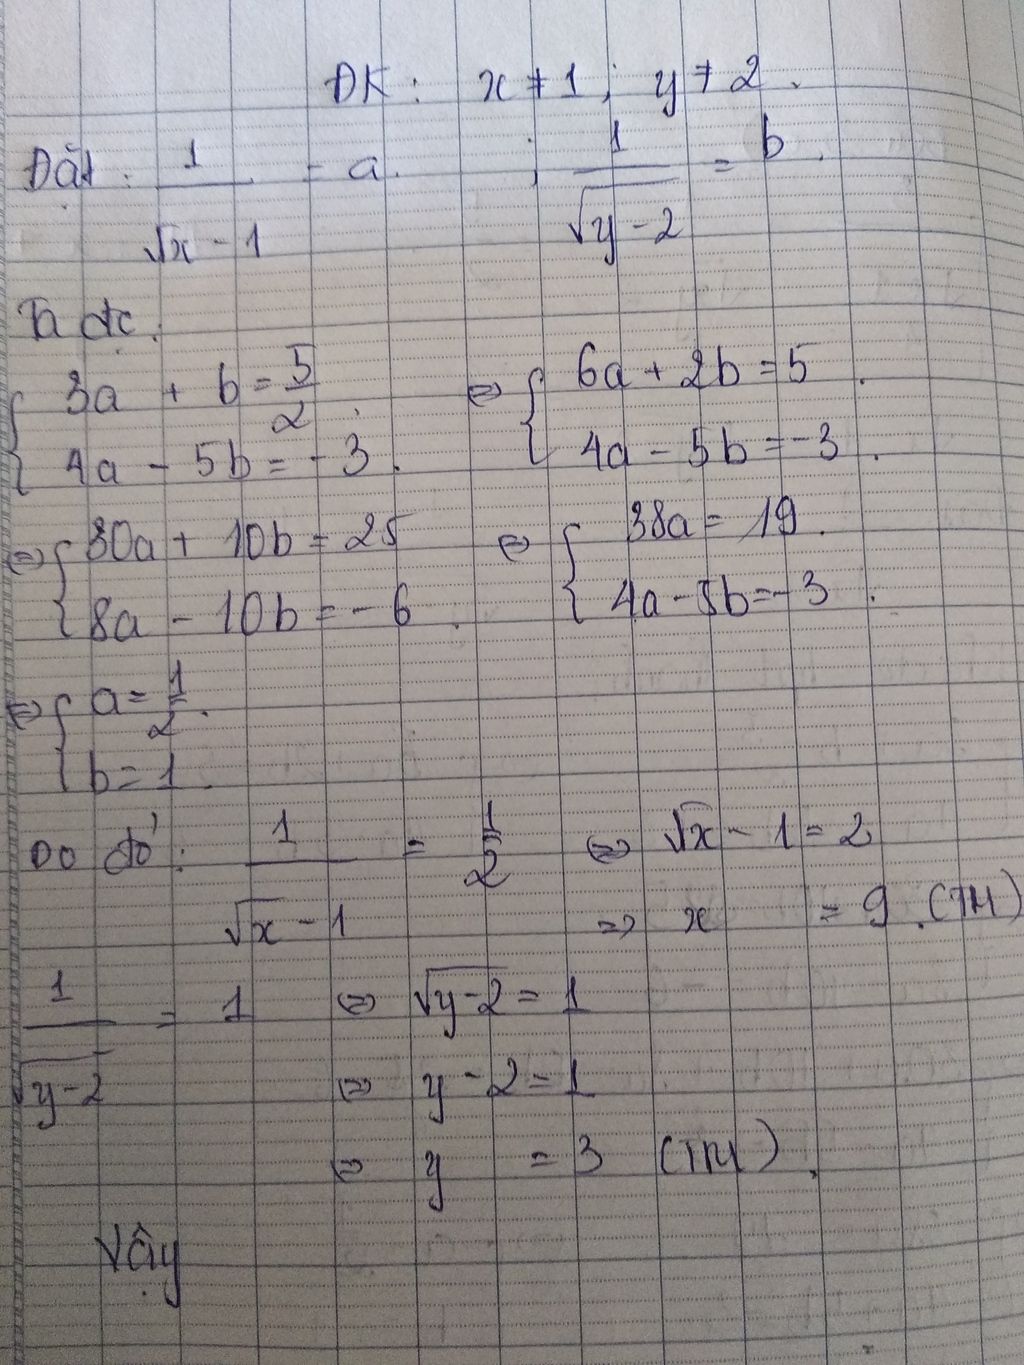 ĐK: x ≠ 1; y ≠ 2.
Đặt: 1/(√x - 1) = a. ; 1/√(y-2) = b.
Ta đc.
{ 3a + b = 5/2 ; 4a - 5b = -3. ⇔ { 6a + 2b = 5. ; 4a - 5b = -3.
⇔ { 30a + 10b = 25 ; 8a - 10b = -6. ⇔ { 38a = 19. ; 4a - 5b = -3.
⇔ { a = 1/2. ; b = 1.
Do đó: 1/(√x - 1) = 1/2 ⇔ √x - 1 = 2
⇒ x = 9. (TM)
1/√(y-2) = 1 ⇔ √(y-2) = 1
⇔ y - 2 = 1
⇔ y = 3 (TM).
Vậy